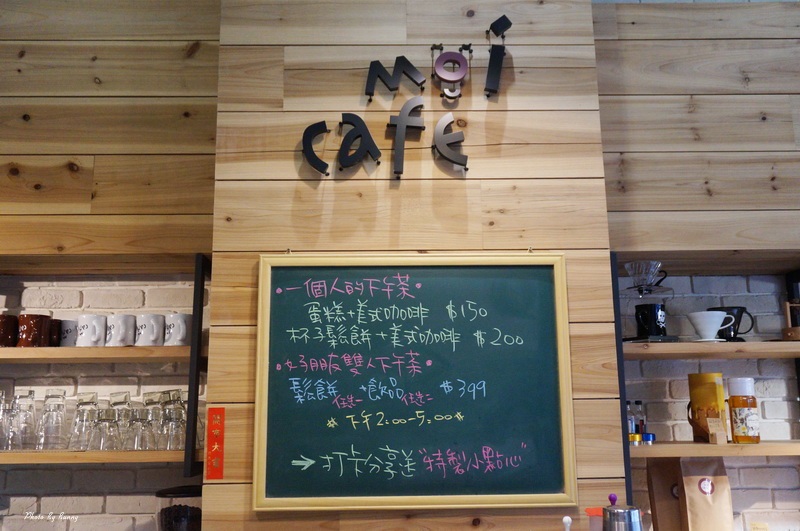 moi
café
•一個人的下午茶•
蛋糕+美式咖啡 $150
杯子鬆餅+美式咖啡 $200
•好朋友雙人下午茶•
鬆餅任選一+飲品任選二 $399
*下午2:00-5:00*
→打卡分享送"特製小點心"
Photo By Runny